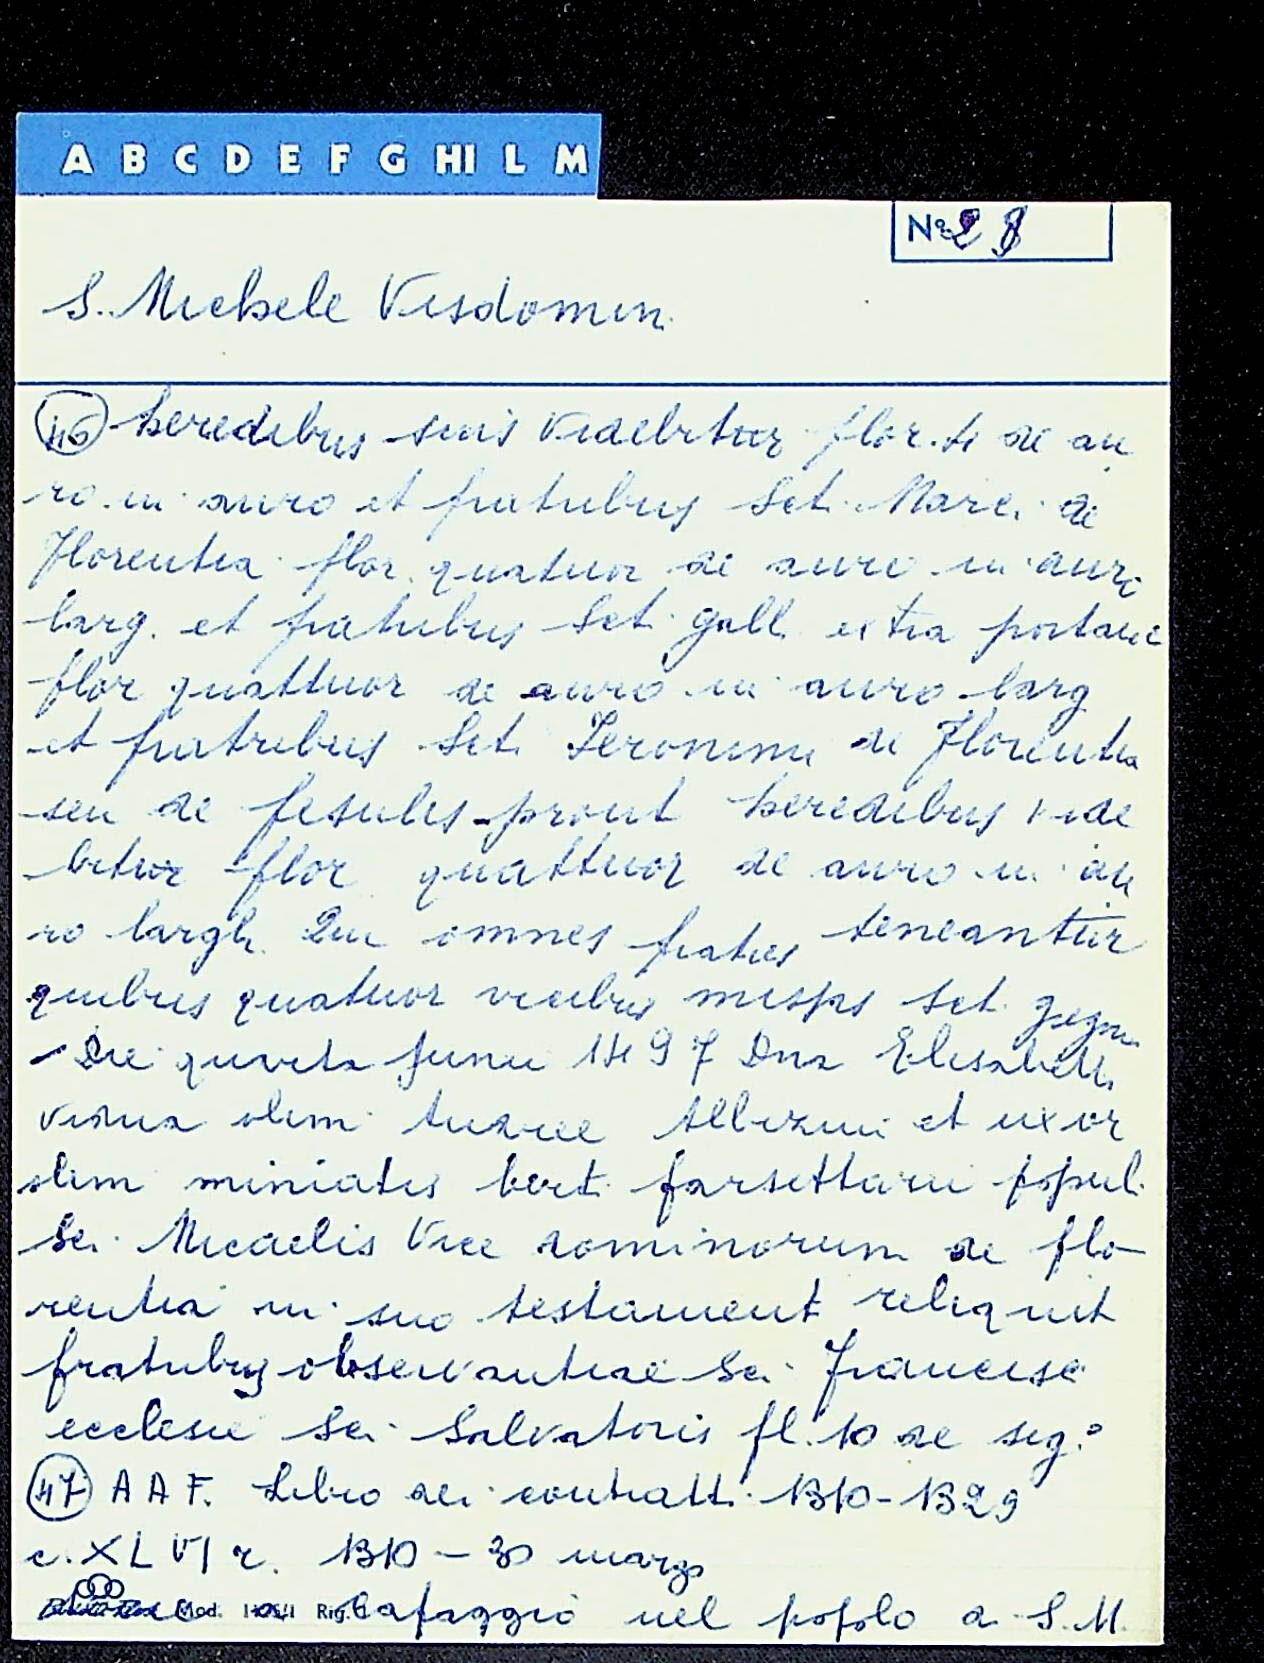 A B C D E F G HI L M
N° 28
S. Michele Visdomini
46 heredibus suis videbitur flor. 4 de au
ro in auro et fratribus Scti Marci de
Florentia flor. quatuor de auro in auro
larg. et fratribus Scti Galli extra portam
flor quattuor de auro in auro larg
et fratribus Scti Ieronimi de Florentia
seu de fesulis prout heredibus vide
bitur flor quattuor de auro in au
ro largh. Qui omnes fratres teneantur
quibus quatuor vicibus Sct.
- Die quarta Junii 1497 Dna Elisabett
vidua olim et uxor
olim miniatis bert. farsettarii popul.
Sci Micaelis Vice dominorum de flo
rentia in suo testament reliquit
fratribus observantiae Sci Francisci
ecclesie Sci Salvatoris fl. 10 de sig.°
47 A A F. Libro dei contratti 1310-1329
c. XLVI r. 1310 - 30 marzo
Mod. Rig. a Cafaggio nel popolo a S. M.